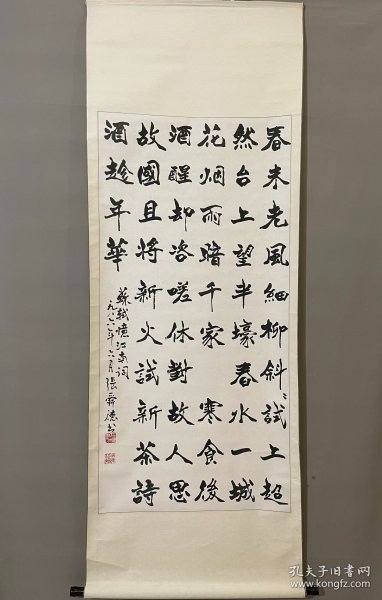 春未老風細柳斜〻試上超
然台上望半壕春水一城
花烟雨暗千家寒食後
酒醒却咨嗟休對故人思
故國且將新火試新茶詩
酒趁年華
蘇軾憶江南詞
一九八六年六月張舜德书
孔夫子旧書网
www.kongfz.com